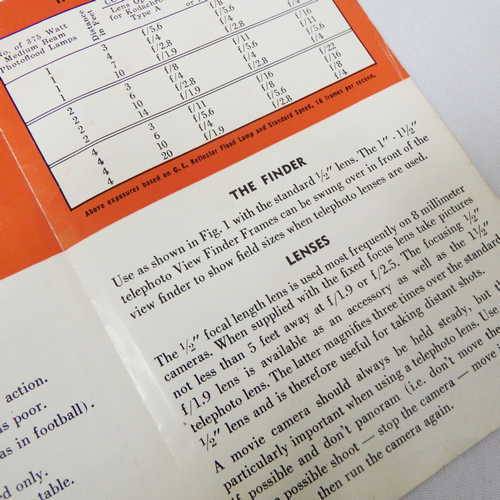 Lens O
for Kodachro
Type A
Distance
in Feet
No. of 375 Watt
Medium Beam
Photoflood Lamps
1 3 f/5.6
1 4 f/4
1 7 f/2.8
1 10 f/1.9
2 3 f/8 f/11
2 6 f/4 f/5.6
2 10 f/2.8 f/4
2 14 f/1.9 f/2.8
4 3 f/11 f/16 f/22
4 6 f/5.6 f/8 f/16
4 10 f/4 f/5.6 f/8
4 20 f/1.9 f/2.8 f/4
Above exposures based on G.E. Reflector Flood Lamp and Standard Speed, 16 frames per second.
THE FINDER
Use as shown in Fig. 1 with the standard 1/2" lens. The 1" - 1 1/2"
telephoto View Finder Frames can be swung over in front of the
view finder to show field sizes when telephoto lenses are used.
LENSES
The 1/2" focal length lens is used most frequently on 8 millimeter
cameras. When supplied with the fixed focus lens take pictures
not less than 5 feet away at f/1.9 or f/2.5. The focusing 1/2"
f/1.9 lens is available as an accessory as well as the 1 1/2"
telephoto lens. The latter magnifies three times over the standard
1/2" lens and is therefore useful for taking distant shots.
A movie camera should always be held steady, but th
particularly important when using a telephoto lens. Use
if possible and don't panoram (i.e. don't move the
as possible shoot — stop the camera — move
then run the camera again.
action.
as poor.
as in football).
d only.
table.